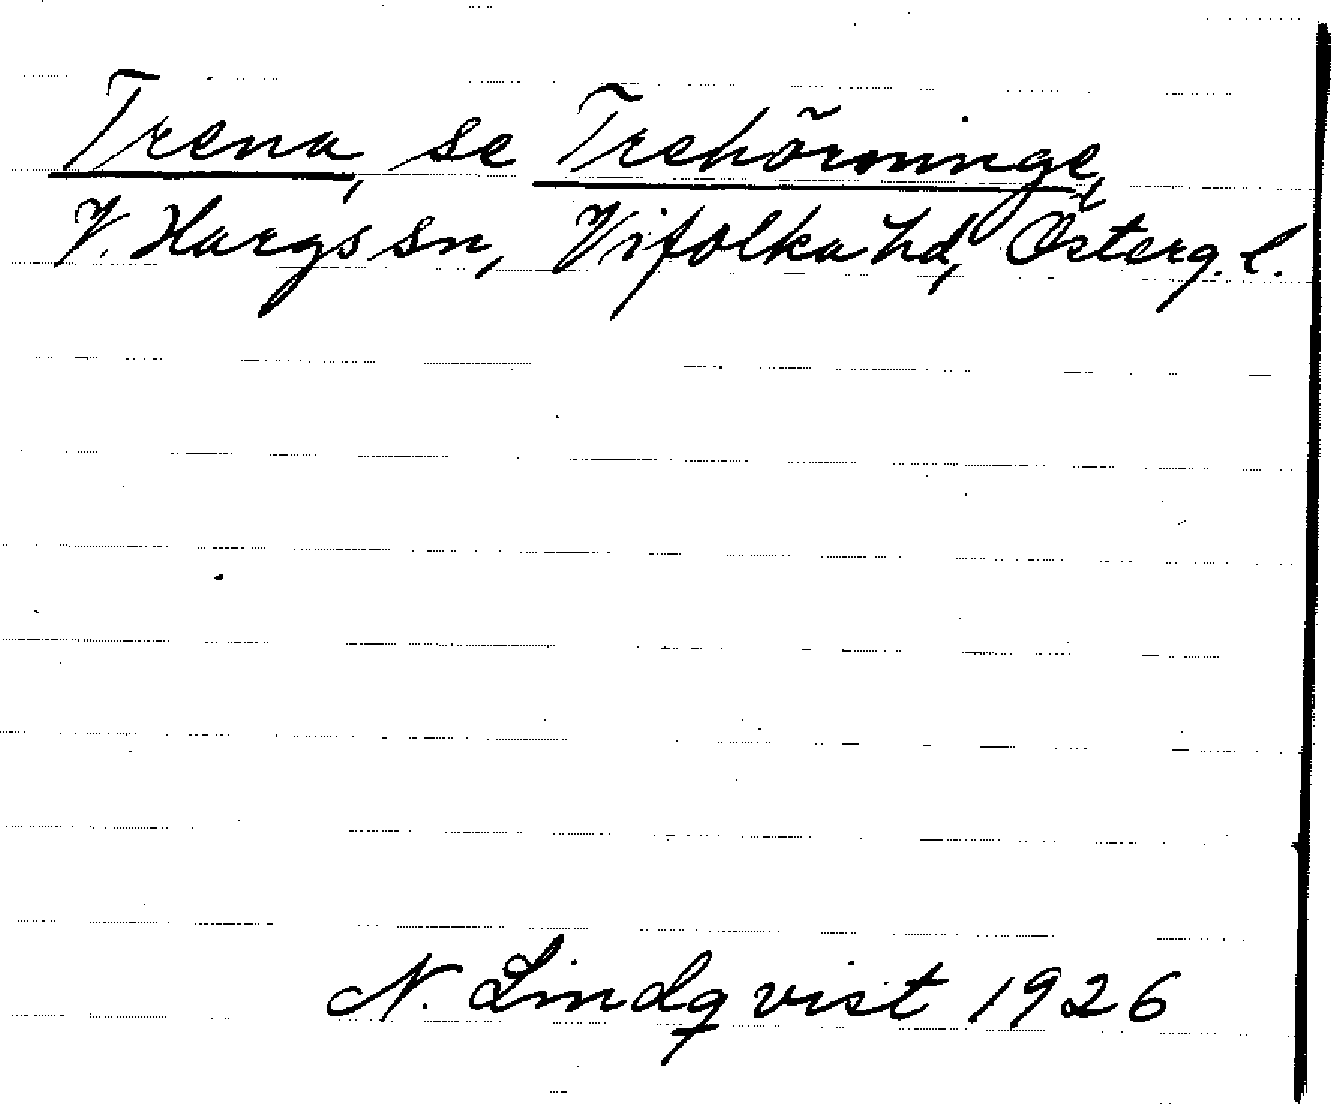 Trena, se Trehörninge,
V. Hargs sn, Vifolka hd, Österg. l.
N. Lindqvist 1926